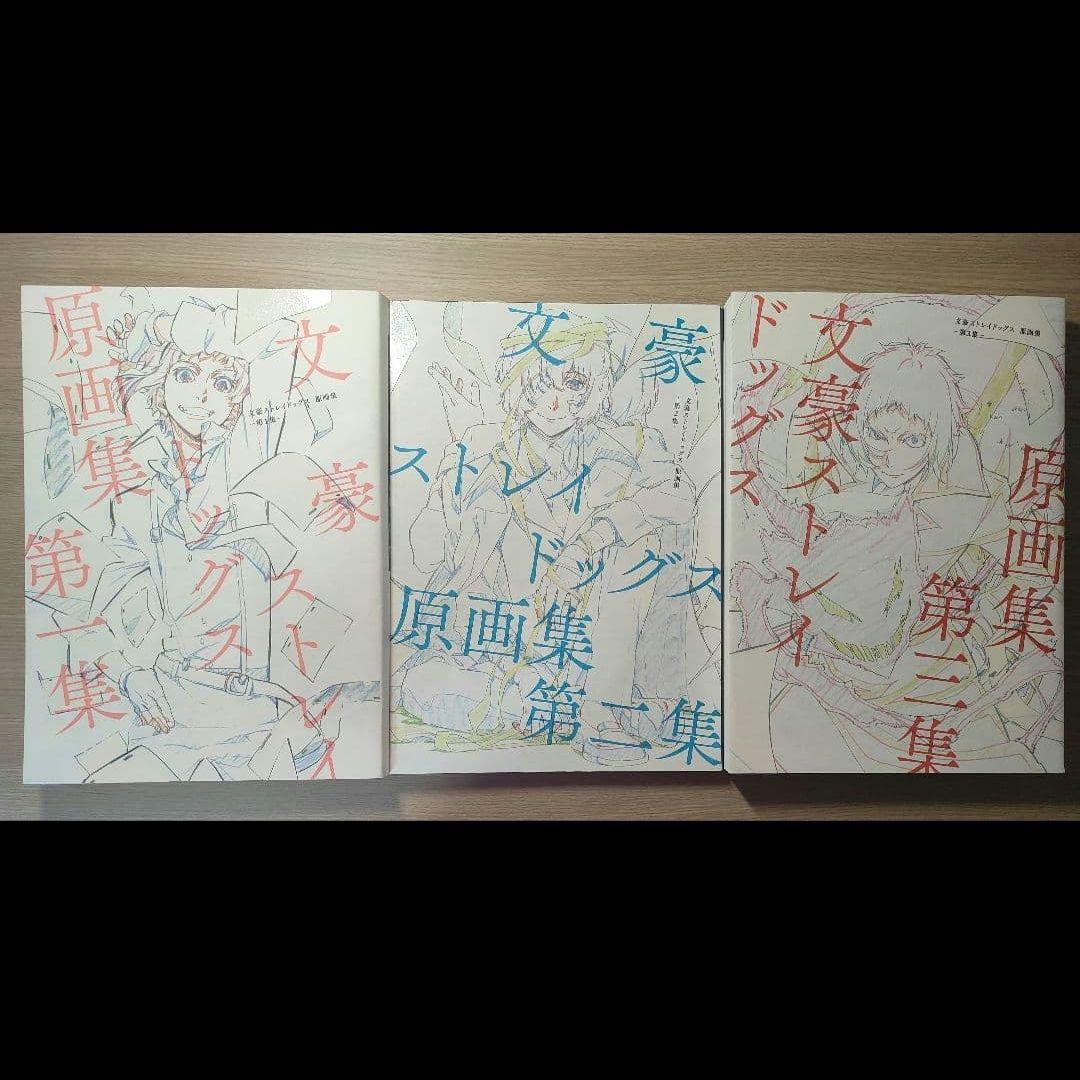 文豪
ストレイ
ドッグス
原画集
第一集
文豪ストレイドッグス 原画集
-第1集-
文豪
ストレイ
ドッグス
原画集
第二集
文豪ストレイドッグス 原画集
-第2集-
文豪ストレイ
ドッグス
原画集
第三集
文豪ストレイドッグス 原画集
-第3集-